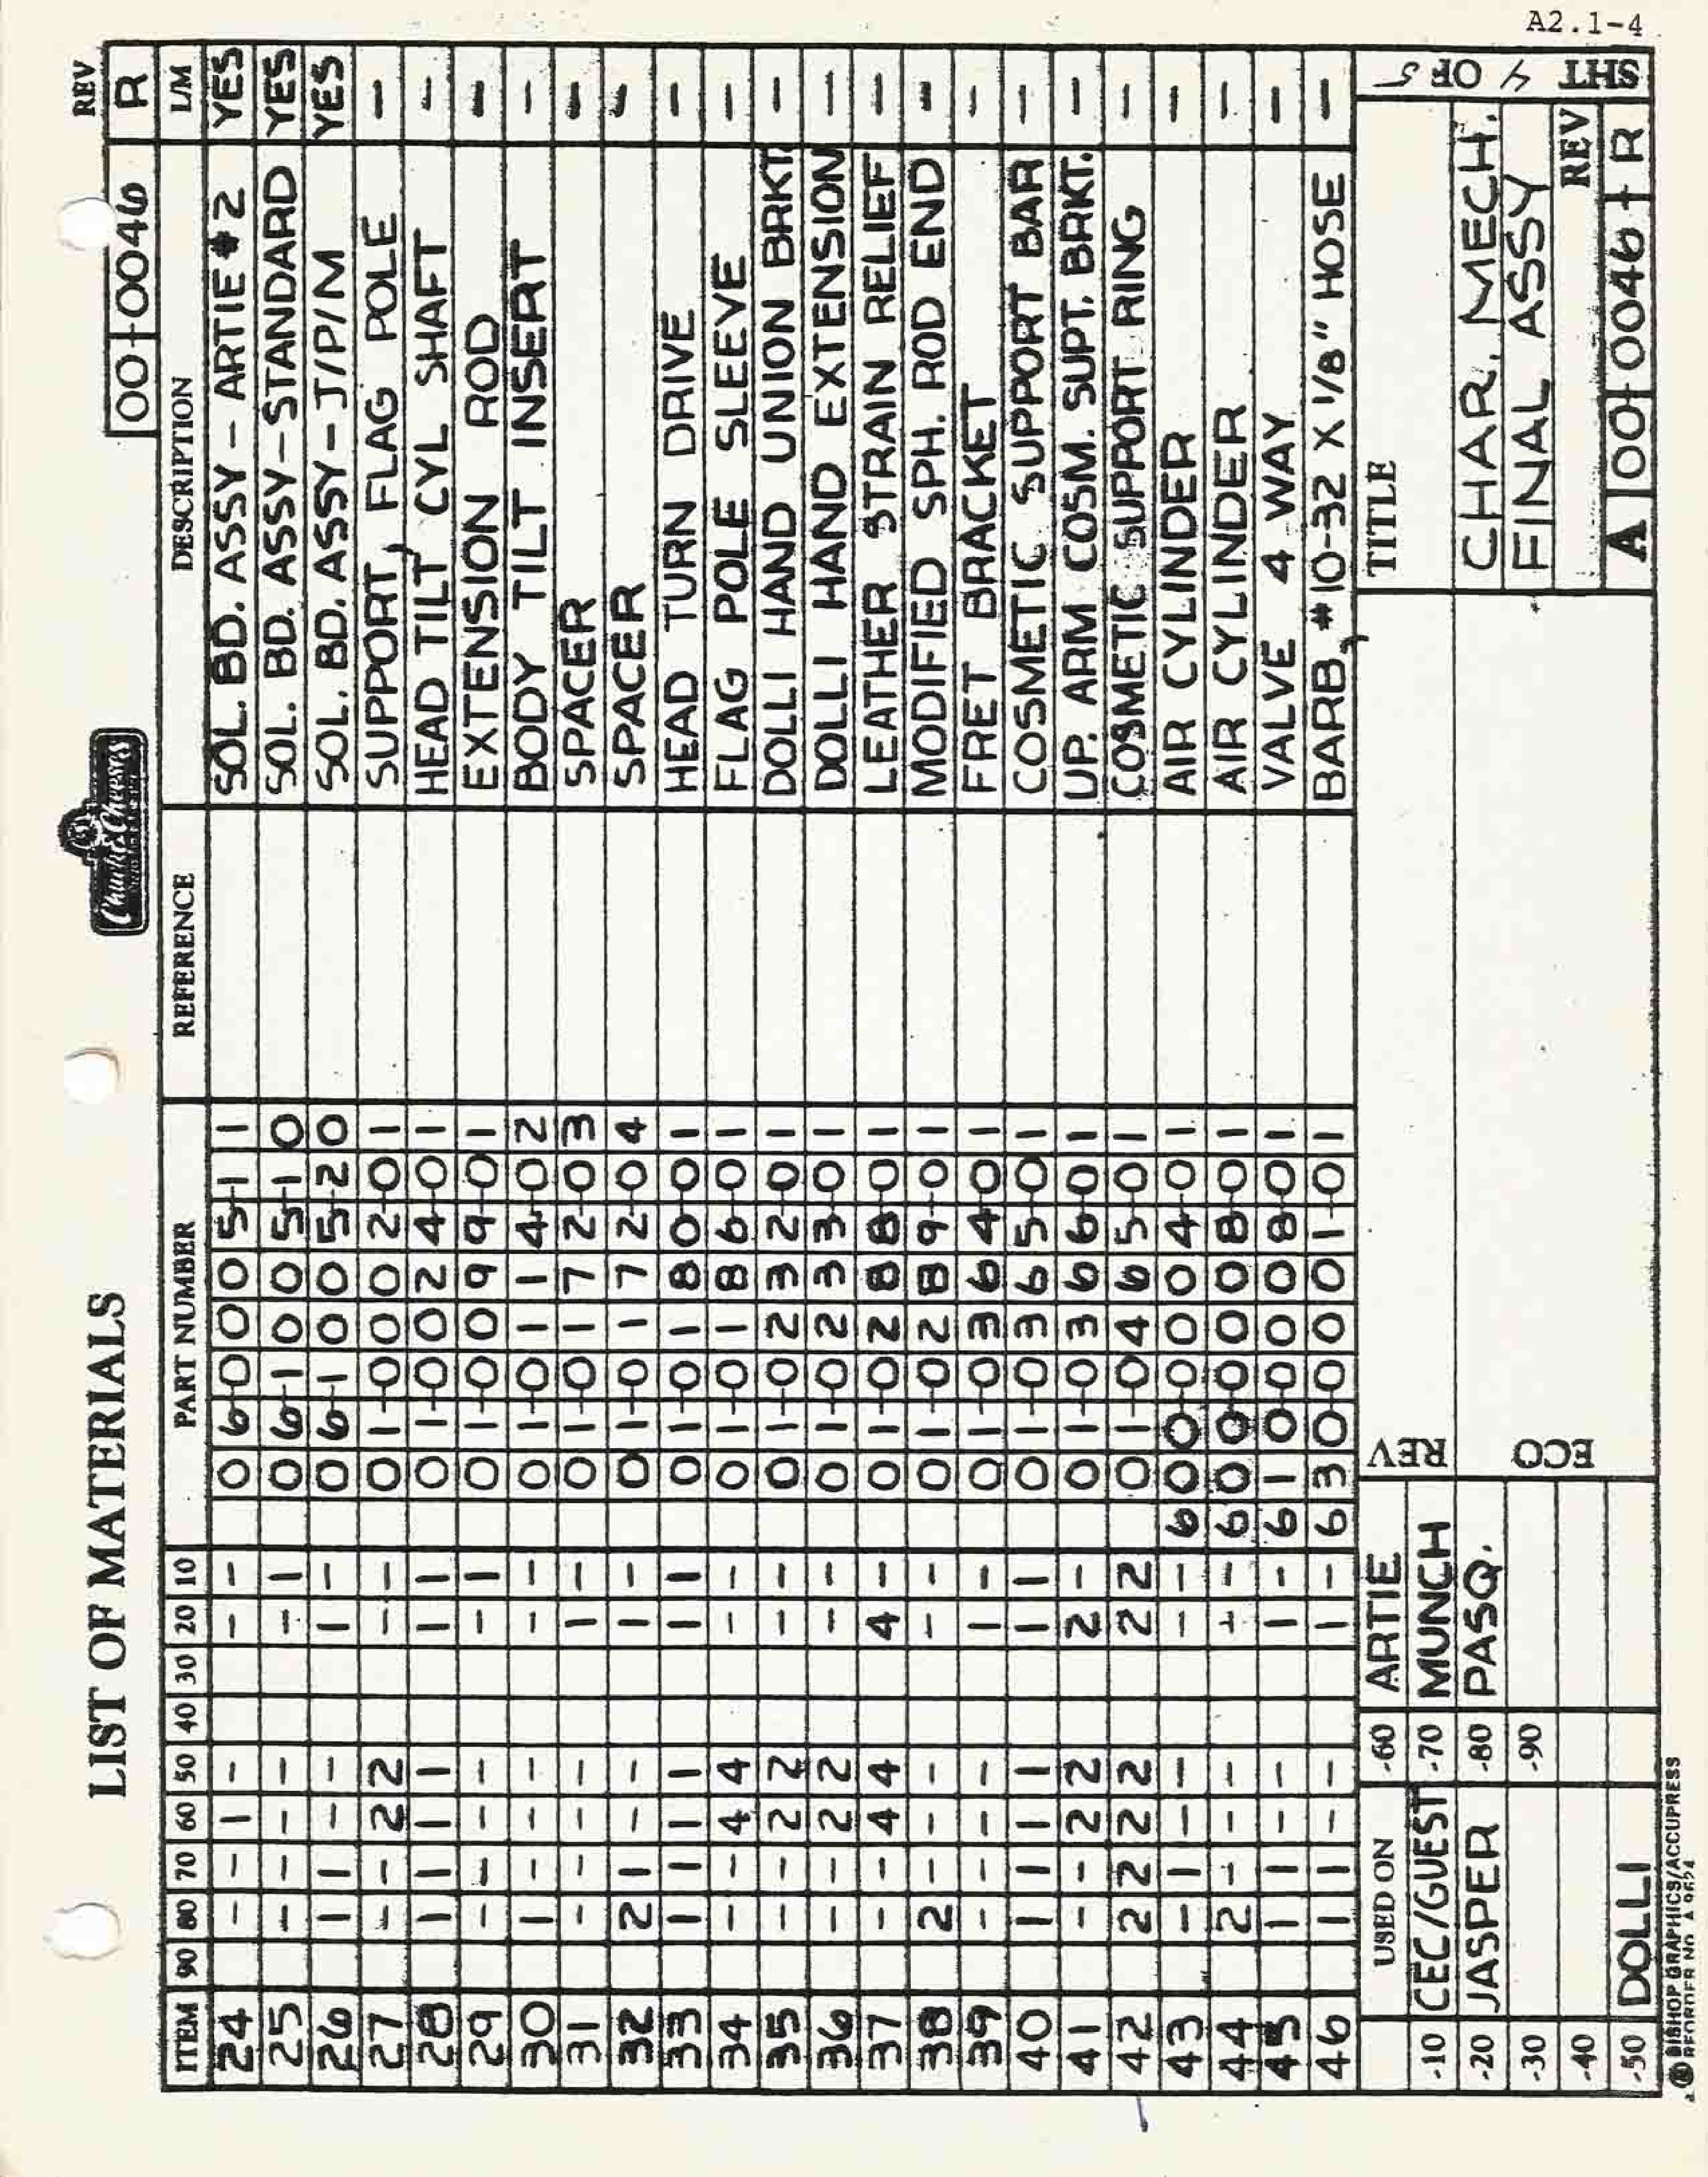 A2.1-4
LIST OF MATERIALS
Chuck E. Cheese's
REV
00-0046 R
ITEM 90 80 70 60 50 40 30 20 10 PART NUMBER REFERENCE DESCRIPTION L/M
24 - - 1 - - - 06-0005-11 SOL. BD. ASSY - ARTIE #2 YES
25 - - - - - 1 06-1005-10 SOL. BD. ASSY - STANDARD YES
26 1 1 - - 1 - 06-1005-20 SOL. BD. ASSY - J/P/M YES
27 - - 2 2 - - 01-0002-01 SUPPORT, FLAG POLE -
28 1 1 1 1 1 1 01-0024-01 HEAD TILT CYL SHAFT -
29 - - - - - 1 01-0099-01 EXTENSION ROD -
30 1 - - - - - 01-0114-02 BODY TILT INSERT -
31 - - - - 1 - 01-0172-03 SPACER -
32 2 1 - - 1 - 01-0172-04 SPACER -
33 1 1 1 1 1 1 01-0180-01 HEAD TURN DRIVE -
34 - - 4 4 - - 01-0186-01 FLAG POLE SLEEVE -
35 - - 2 2 - - 01-0232-01 DOLLI HAND UNION BRKT. -
36 - - 2 2 - - 01-0233-01 DOLLI HAND EXTENSION -
37 - - 4 4 4 - 01-0288-01 LEATHER STRAIN RELIEF -
38 2 - - - - - 01-0289-01 MODIFIED SPH. ROD END -
39 - - - - 1 - 01-0364-01 FRET BRACKET -
40 1 1 1 1 1 1 01-0365-01 COSMETIC SUPPORT BAR -
41 - - 2 2 2 - 01-0366-01 UP. ARM COSM. SUPT. BRKT. -
42 2 2 2 2 2 2 01-0465-01 COSMETIC SUPPORT RING -
43 - 1 - - - - 600-0004-01 AIR CYLINDER -
44 2 - - - - - 600-0008-01 AIR CYLINDER -
45 1 1 - - 1 - 610-0008-01 VALVE 4 WAY -
46 1 1 - - 1 - 630-0001-01 BARB, #10-32 X 1/8" HOSE -
USED ON
-10 CEC/GUEST
-20 JASPER
-30
-40
-50 DOLLI
-60 ARTIE
-70 MUNCH
-80 PASQ.
-90
REV
ECO
TITLE
CHAR. MECH.
FINAL ASSY
REV
A 00-0046 R
SHT 4 OF 5
BISHOP GRAPHICS/ACCUPRESS
REORDER NO. A 9624